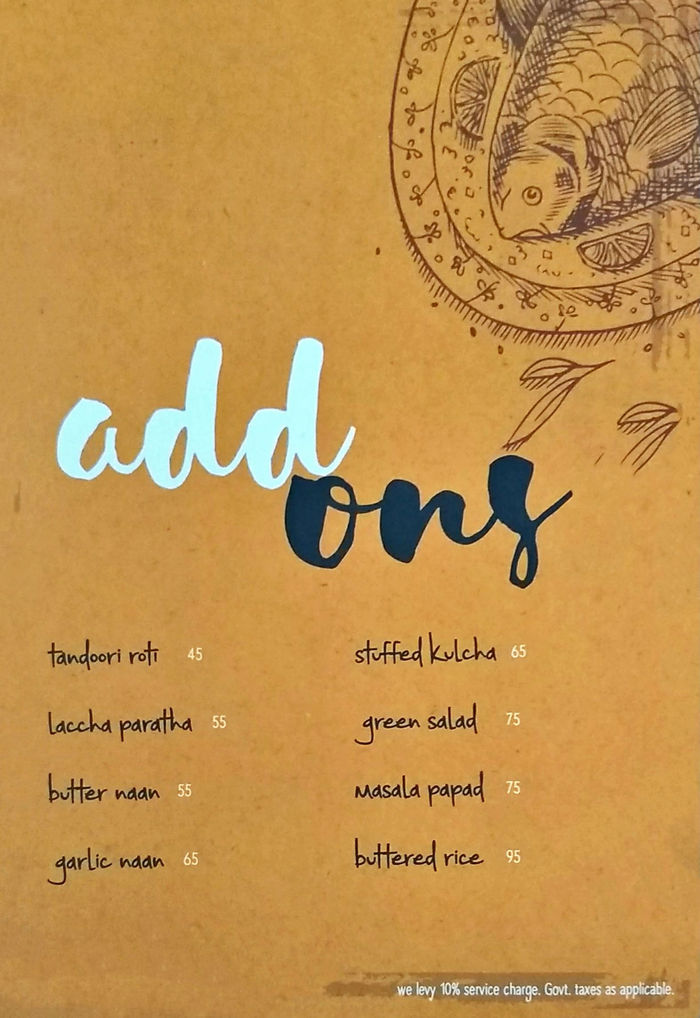 add
ons
tandoori roti 45
laccha paratha 55
butter naan 55
garlic naan 65
stuffed kulcha 65
green salad 75
masala papad 75
buttered rice 95
we levy 10% service charge. Govt. taxes as applicable.